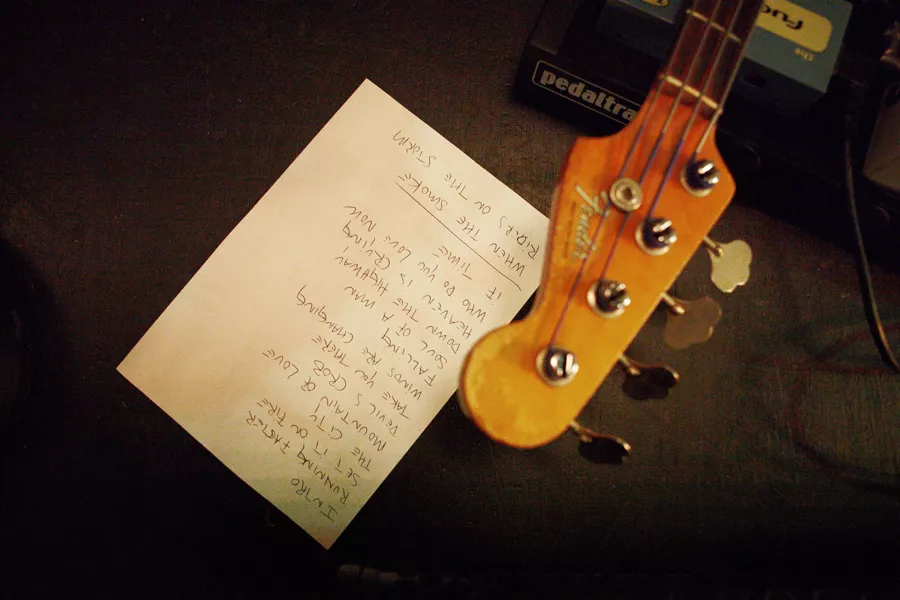 INTRO
RUNNING FASTER
SET IT ON FIRE
THE CITY
MOUNTAIN OF LOVE
DEVILS CROB
TAKE YOU THERE
WINDS ARE CHANGING
FALLING
SOUL OF A MAN
DOWN THE HIGHWAY
HEAVEN IS CRYING
WHO DO YOU LOVE NOW
IF TIME
WHEN THE SMOKE
RIDERS ON THE STORM
Fender
pedaltra
the